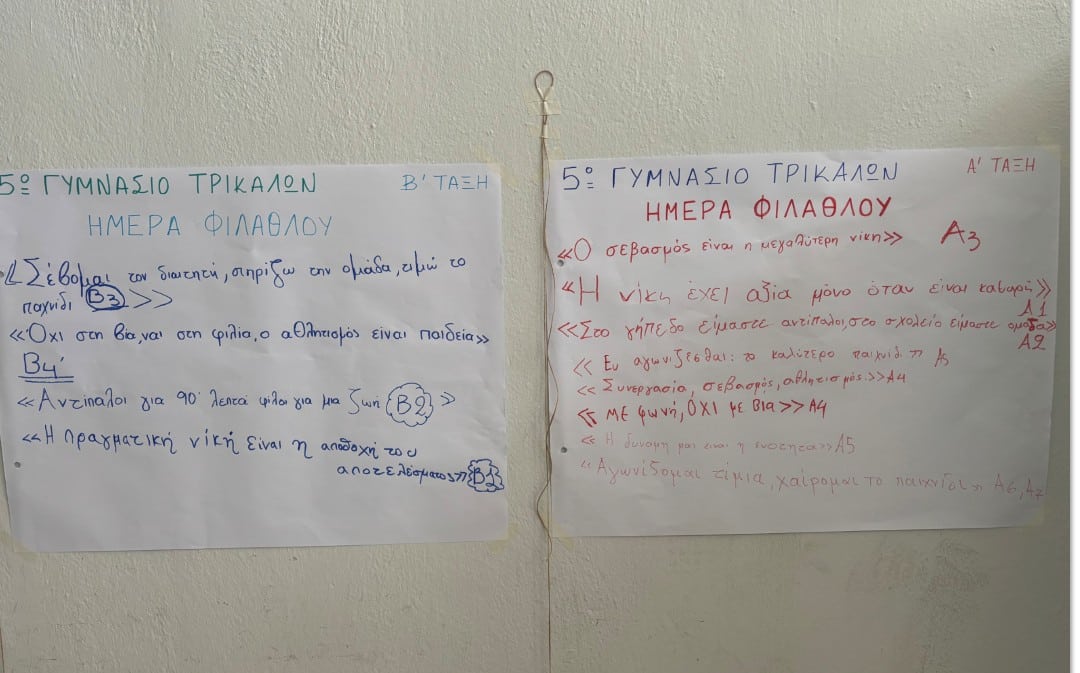 5ο ΓΥΜΝΑΣΙΟ ΤΡΙΚΑΛΩΝ Β' ΤΑΞΗ
ΗΜΕΡΑ ΦΙΛΑΘΛΟΥ
«Σέβομαι τον διαιτητή, στηρίζω την ομάδα, τιμώ το
παχνίδι Β3 »
«Όχι στη βία, ναι στη φιλία, ο αθλητισμός είναι παιδεία»
Β4'
«Αντίπαλοι για 90' λεπτά φίλοι για μια ζωή Β2 »
«Η πραγματική νίκη είναι η αποδοχή του
αποτελέσματος» Β1
5ο ΓΥΜΝΑΣΙΟ ΤΡΙΚΑΛΩΝ Α' ΤΑΞΗ
ΗΜΕΡΑ ΦΙΛΑΘΛΟΥ
«Ο σεβασμός είναι η μεγαλύτερη νίκη» Α3
«Η νίκη έχει αξία μόνο όταν είναι καθαρή»
Α1
«Στο γήπεδο είμαστε αντίπαλοι, στο σχολείο είμαστε ομάδα»
Α2
«Ευ αγωνίζεσθαι: το καλύτερο παιχνίδι» Α5
«Συνεργασία, σεβασμός, αθλητισμός.» Α4
«ΜΕ φωνή, ΟΧΙ με ΒΙΑ» Α4
«Η δύναμη μας είναι η ενότητα» Α5
«Αγωνίδομαι τίμια, χαίρομαι το παιχνίδι» Α6, Α7